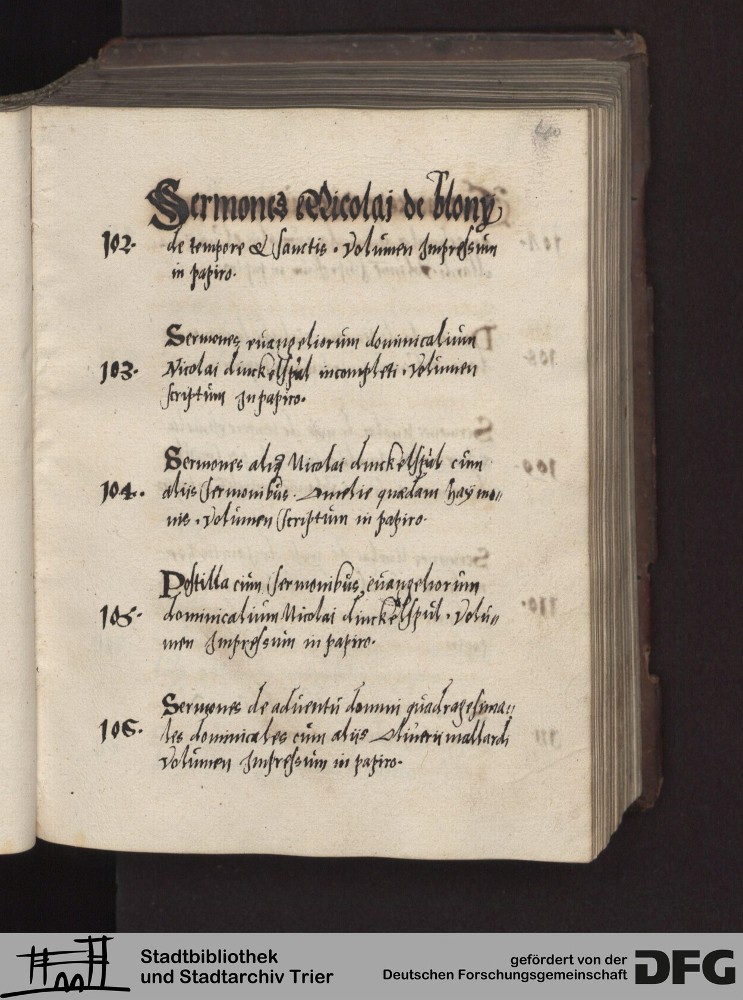 Sermones Nicolai de blony
102. de tempore & sanctis. Volumen Impressum
in papiro.
Sermones euangeliorum dominicalium
103. Nicolai dinckelspul incompleti. Volumen
scriptum in papiro.
Sermones aliq Nicolai dinckelspul cum
104. aliis sermonibus. Omelie quedam haymo„
nis. Volumen scriptum in papiro.
Postilla cum sermonibus euangeliorum
105. dominicalium Nicolai dinckelspul. Volu„
men Impressum in papiro.
Sermones de aduentu domini quadragesima„
106. les dominicales cum aliis Oliuerii mallardi
Volumen Impressum in papiro.
Stadtbibliothek
und Stadtarchiv Trier
gefördert von der
Deutschen Forschungsgemeinschaft
DFG